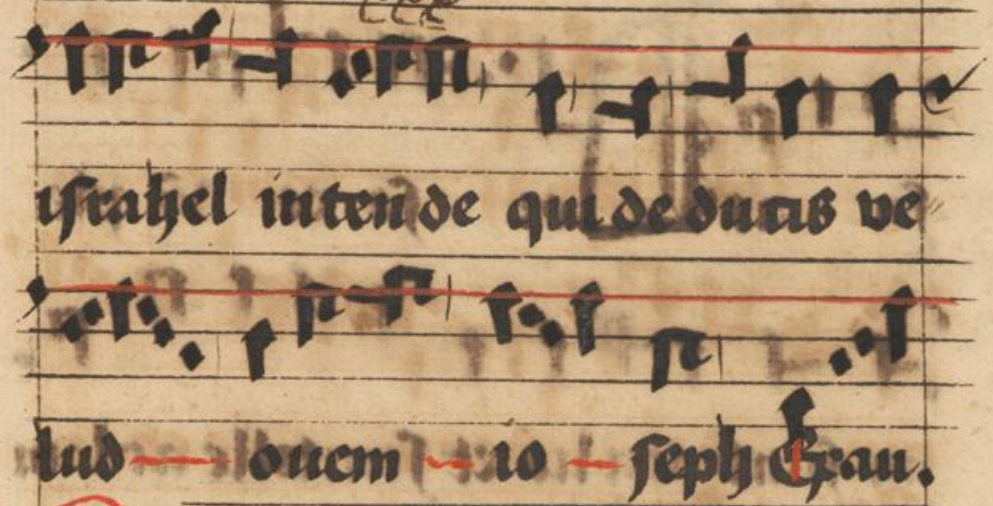 israhel intende qui deducis ve
lud ouem io seph Exau.